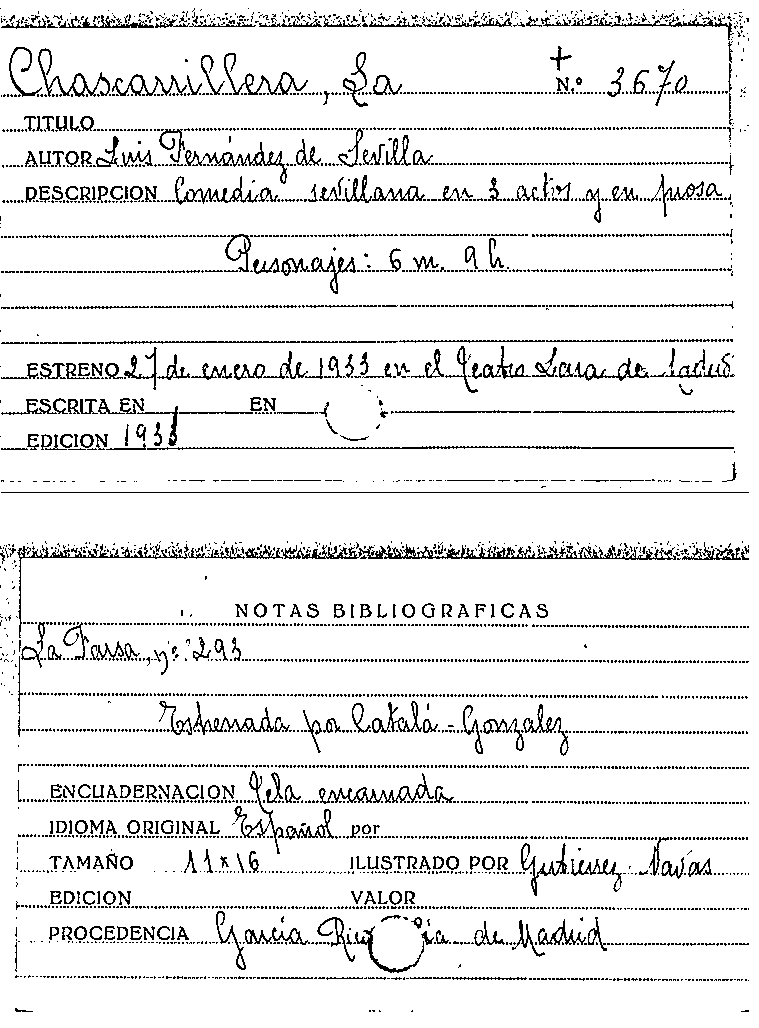 Chascarrillera, La
+
N.º 3670
TITULO
AUTOR Luis Fernández de Sevilla
DESCRIPCION Comedia sevillana en 3 actos y en prosa
Personajes: 6 m. 9 h.
ESTRENO 27 de enero de 1933 en el Teatro Lara de
ESCRITA EN EN
EDICION 1933
NOTAS BIBLIOGRAFICAS
La Farsa, nº 293
Estrenada por Catalá-Gonzalez
ENCUADERNACION Tela encarnada
IDIOMA ORIGINAL Español por
TAMAÑO 11 x 16 ILUSTRADO POR Gutierrez-Navas
EDICION VALOR
PROCEDENCIA García Rico de Madrid